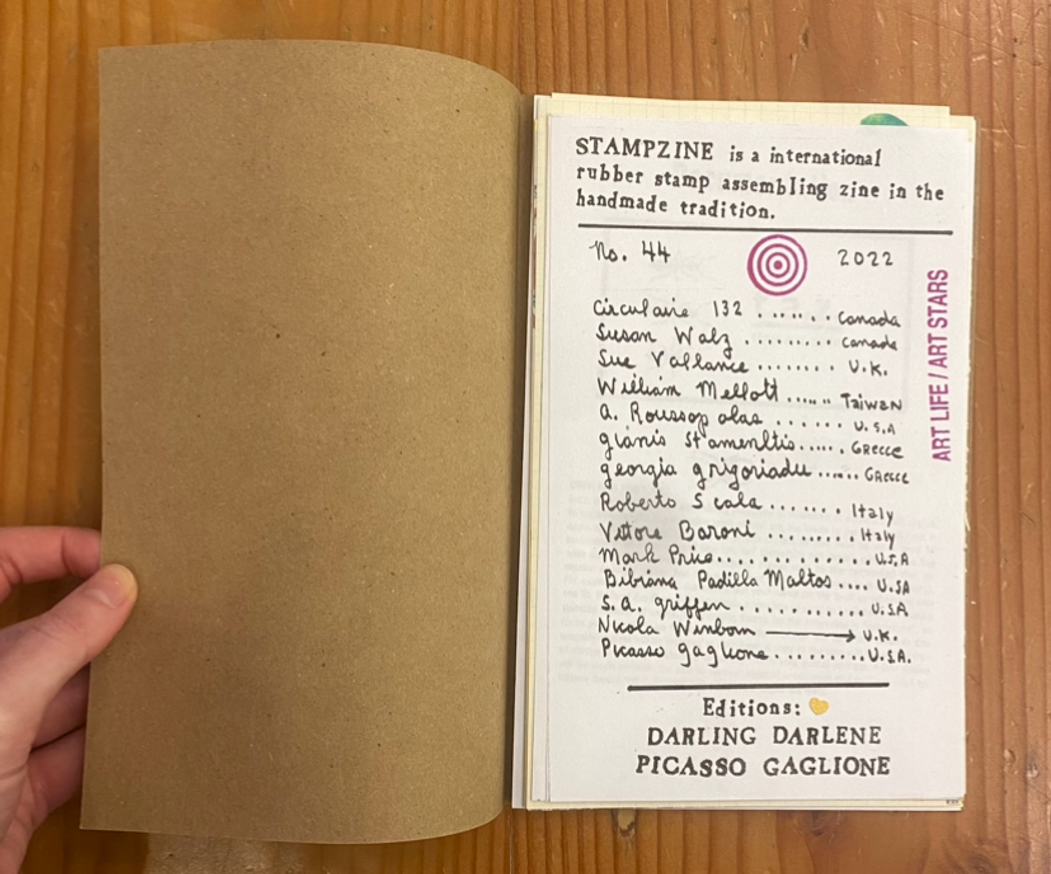 STAMPZINE is a international
rubber stamp assembling zine in the
handmade tradition.
No. 44 2022
Circulaire 132 ....... Canada
Susan Walz ......... Canada
Sue Vallance ........ U.K.
William Mellott ...... Taiwan
a. Roussopolas ...... U.S.A
gianis Stamenitis ..... Greece
georgia grigoriadu ...... Greece
Roberto Scala ....... Italy
Vittore Baroni ......... Italy
Mark Price ............. U.S.A
Bibiana Padilla Maltos .... U.SA
S.a. griffen ........... U.S.A
Nicola Winborn → U.K.
Picasso gaglione ......... U.S.A.
ART LIFE / ART STARS
Editions:
DARLING DARLENE
PICASSO GAGLIONE